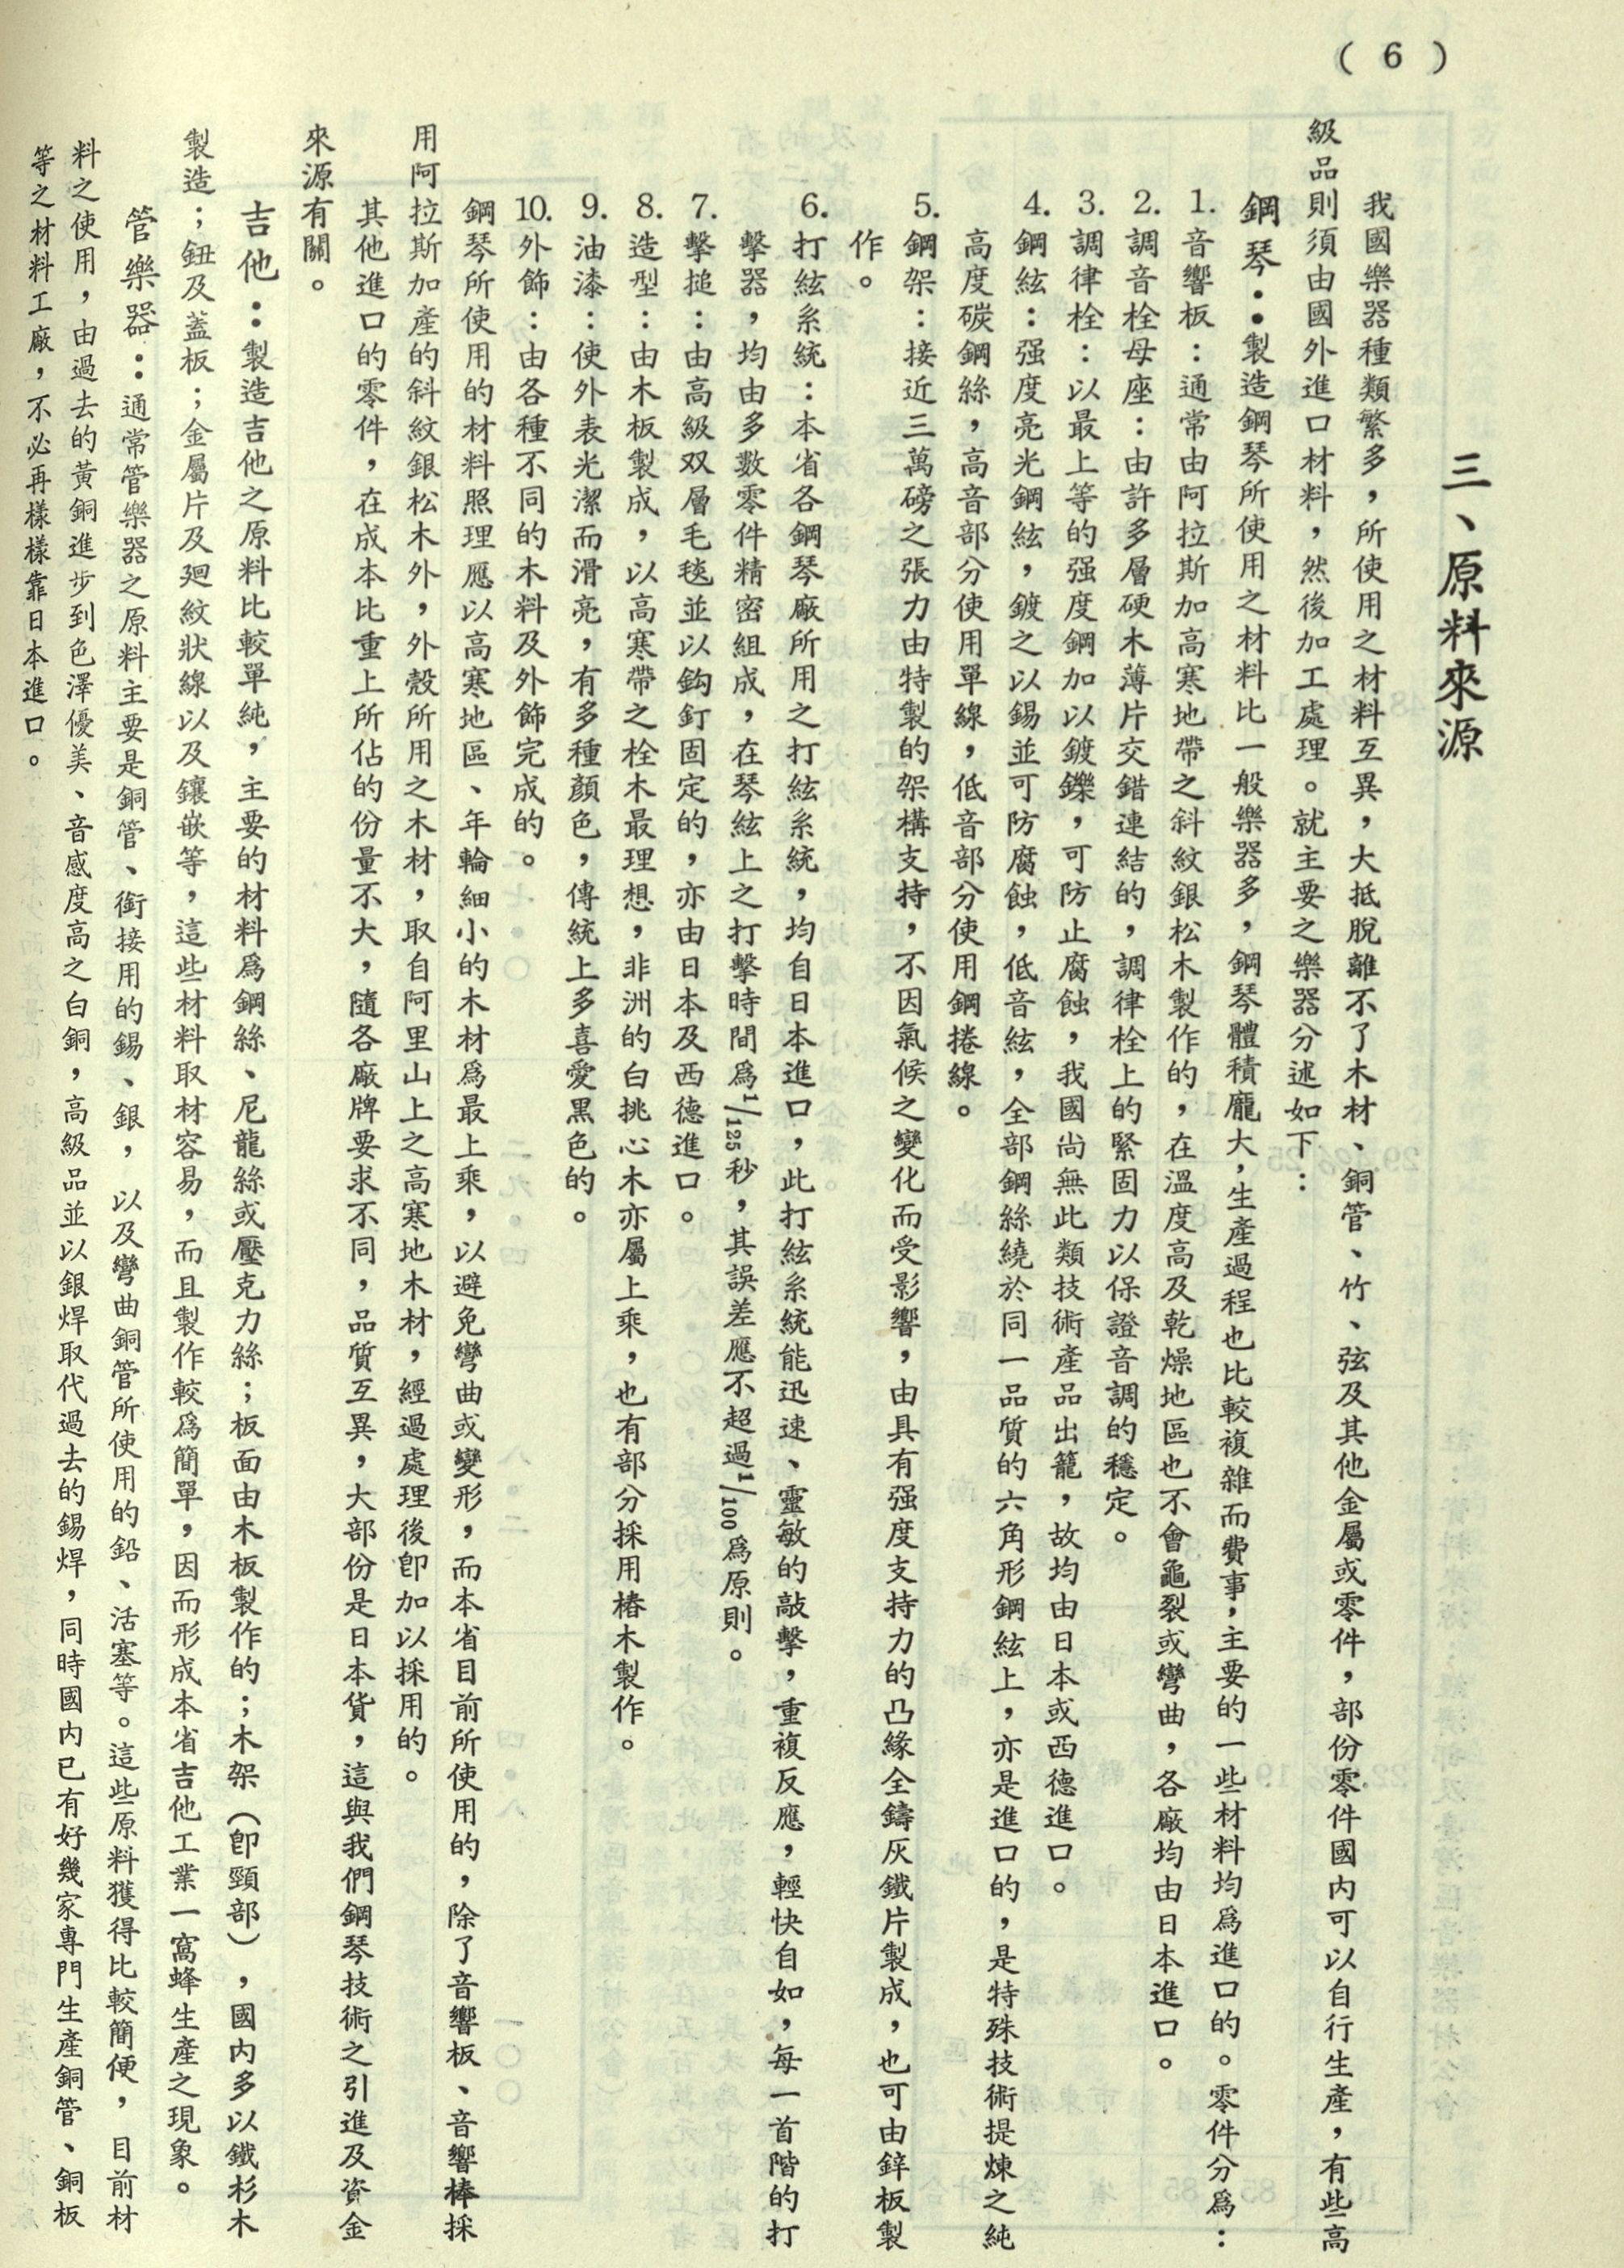 ( 6 )
三、原料來源
我國樂器種類繁多，所使用之材料互異，大抵脫離不了木材、銅管、竹、弦及其他金屬或零件，部份零件國內可以自行生產，有些高
級品則須由國外進口材料，然後加工處理。就主要之樂器分述如下：
鋼琴：製造鋼琴所使用之材料比一般樂器多，鋼琴體積龐大，生產過程也比較複雜而費事，主要的一些材料均爲進口的。零件分爲：
1.音響板：通常由阿拉斯加高寒地帶之斜紋銀松木製作的，在溫度高及乾燥地區也不會龜裂或彎曲，各廠均由日本進口。
2.調音栓母座：由許多層硬木薄片交錯連結的，調律栓上的緊固力以保證音調的穩定。
3.調律栓：以最上等的强度鋼加以鍍鑠，可防止腐蝕，我國尚無此類技術產品出籠，故均由日本或西德進口。
4.鋼絃：强度亮光鋼絃，鍍之以錫並可防腐蝕，低音絃，全部鋼絲繞於同一品質的六角形鋼絃上，亦是進口的，是特殊技術提煉之純
高度碳鋼絲，高音部分使用單線，低音部分使用鋼捲線。
5.鋼架：接近三萬磅之張力由特製的架構支持，不因氣候之變化而受影響，由具有强度支持力的凸緣全鑄灰鐵片製成，也可由鋅板製
作。
6.打絃系統：本省各鋼琴廠所用之打絃系統，均自日本進口，此打絃系統能迅速、靈敏的敲擊，重複反應，輕快自如，每一首階的打
擊器，均由多數零件精密組成，在琴絃上之打擊時間爲1/125秒，其誤差應不超過1/100爲原則。
7.擊搥：由高級双層毛毯並以鈎釘固定的，亦由日本及西德進口。
8.造型：由木板製成，以高寒帶之栓木最理想，非洲的白挑心木亦屬上乘，也有部分採用椿木製作。
9.油漆：使外表光潔而滑亮，有多種顏色，傳統上多喜愛黑色的。
10.外飾：由各種不同的木料及外飾完成的。
鋼琴所使用的材料照理應以高寒地區、年輪細小的木材爲最上乘，以避免彎曲或變形，而本省目前所使用的，除了音響板、音響棒採
用阿拉斯加產的斜紋銀松木外，外殼所用之木材，取自阿里山上之高寒地木材，經過處理後卽加以採用的。
其他進口的零件，在成本比重上所佔的份量不大，隨各廠牌要求不同，品質互異，大部份是日本貨，這與我們鋼琴技術之引進及資金
來源有關。
吉他：製造吉他之原料比較單純，主要的材料爲鋼絲、尼龍絲或壓克力絲；板面由木板製作的；木架（卽頸部），國內多以鐵杉木
製造；鈕及蓋板；金屬片及廻紋狀線以及鑲嵌等，這些材料取材容易，而且製作較爲簡單，因而形成本省吉他工業一窩蜂生產之現象。
管樂器：通常管樂器之原料主要是銅管、銜接用的錫、銀，以及彎曲銅管所使用的鉛、活塞等。這些原料獲得比較簡便，目前材
料之使用，由過去的黃銅進步到色澤優美、音感度高之白銅，高級品並以銀焊取代過去的錫焊，同時國內已有好幾家專門生產銅管、銅板
等之材料工廠，不必再樣樣靠日本進口。